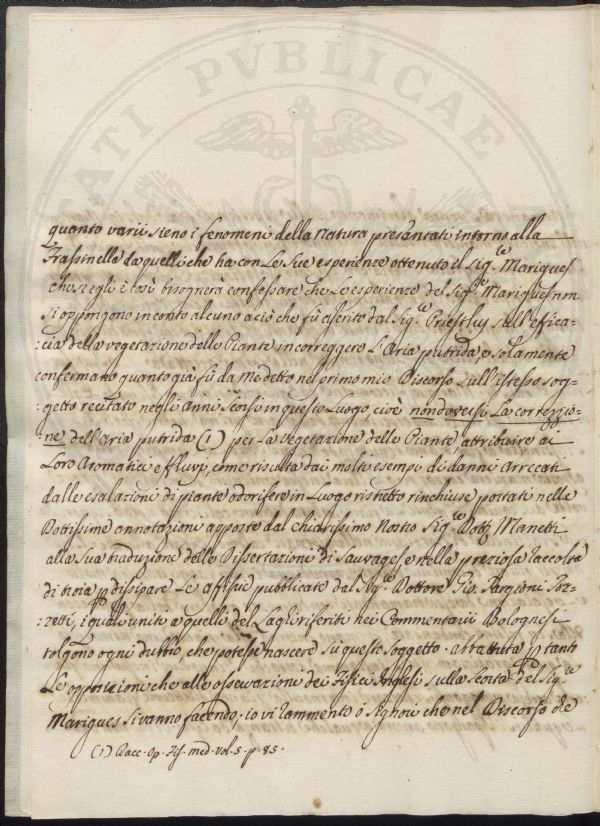 ATI PVBLICAE
quanto varii sieno i fenomeni della natura presentati intorno alla
Frassinella da quelli che ha con le sue esperienze ottenuto il Sig.re Marigues
che se egli è così bisognerà confessare che le esperienze del Sig.re Marigues non
si oppongono in conto alcuno a ciò che fù asserito dal Sig.re Priestley sull'effica-
:cia della vegetazione delle Piante in correggere l'Aria putrida e solamente
confermano quanto già fù da Me detto nel primo mio Discorso sull'istesso sog-
:getto recitato negli anni scorsi in questo Luogo cioè non doversi la correzio-
:ne dell'aria putrida (1) per la vegetazione delle Piante, attribuire ai
Loro Aromatici effluvj, come risulta dai molti esempi di danni arrecati
dalle esalazioni di piante odorifere in Luogo ristretto rinchiuse portati nelle
Dottissime annotazioni apposte dal chiarissimo Nostro Sig.re Dott. Manetti
alla sua traduzione delle Dissertazioni di Sauvages e nella preziosa raccolta
di teoria p dissipare le afissie pubblicate dal Sig.re Dottore Gio. Targioni Toz-
:zetti, i quali uniti a quelli del Laghi riferiti nei Commentarii Bolognesi
tolgono ogni dubbio, che potesse nascere su questo soggetto. abbattute p tanto
Le opposizioni che alle osservazioni dei Fisici Inglesi sulla scorta del Sig.re
Marigues si vanno facendo. io vi rammento ò Signori che nel Discorso che
(1) Racc. Op. Fis. med. vol. 5. p. 85.